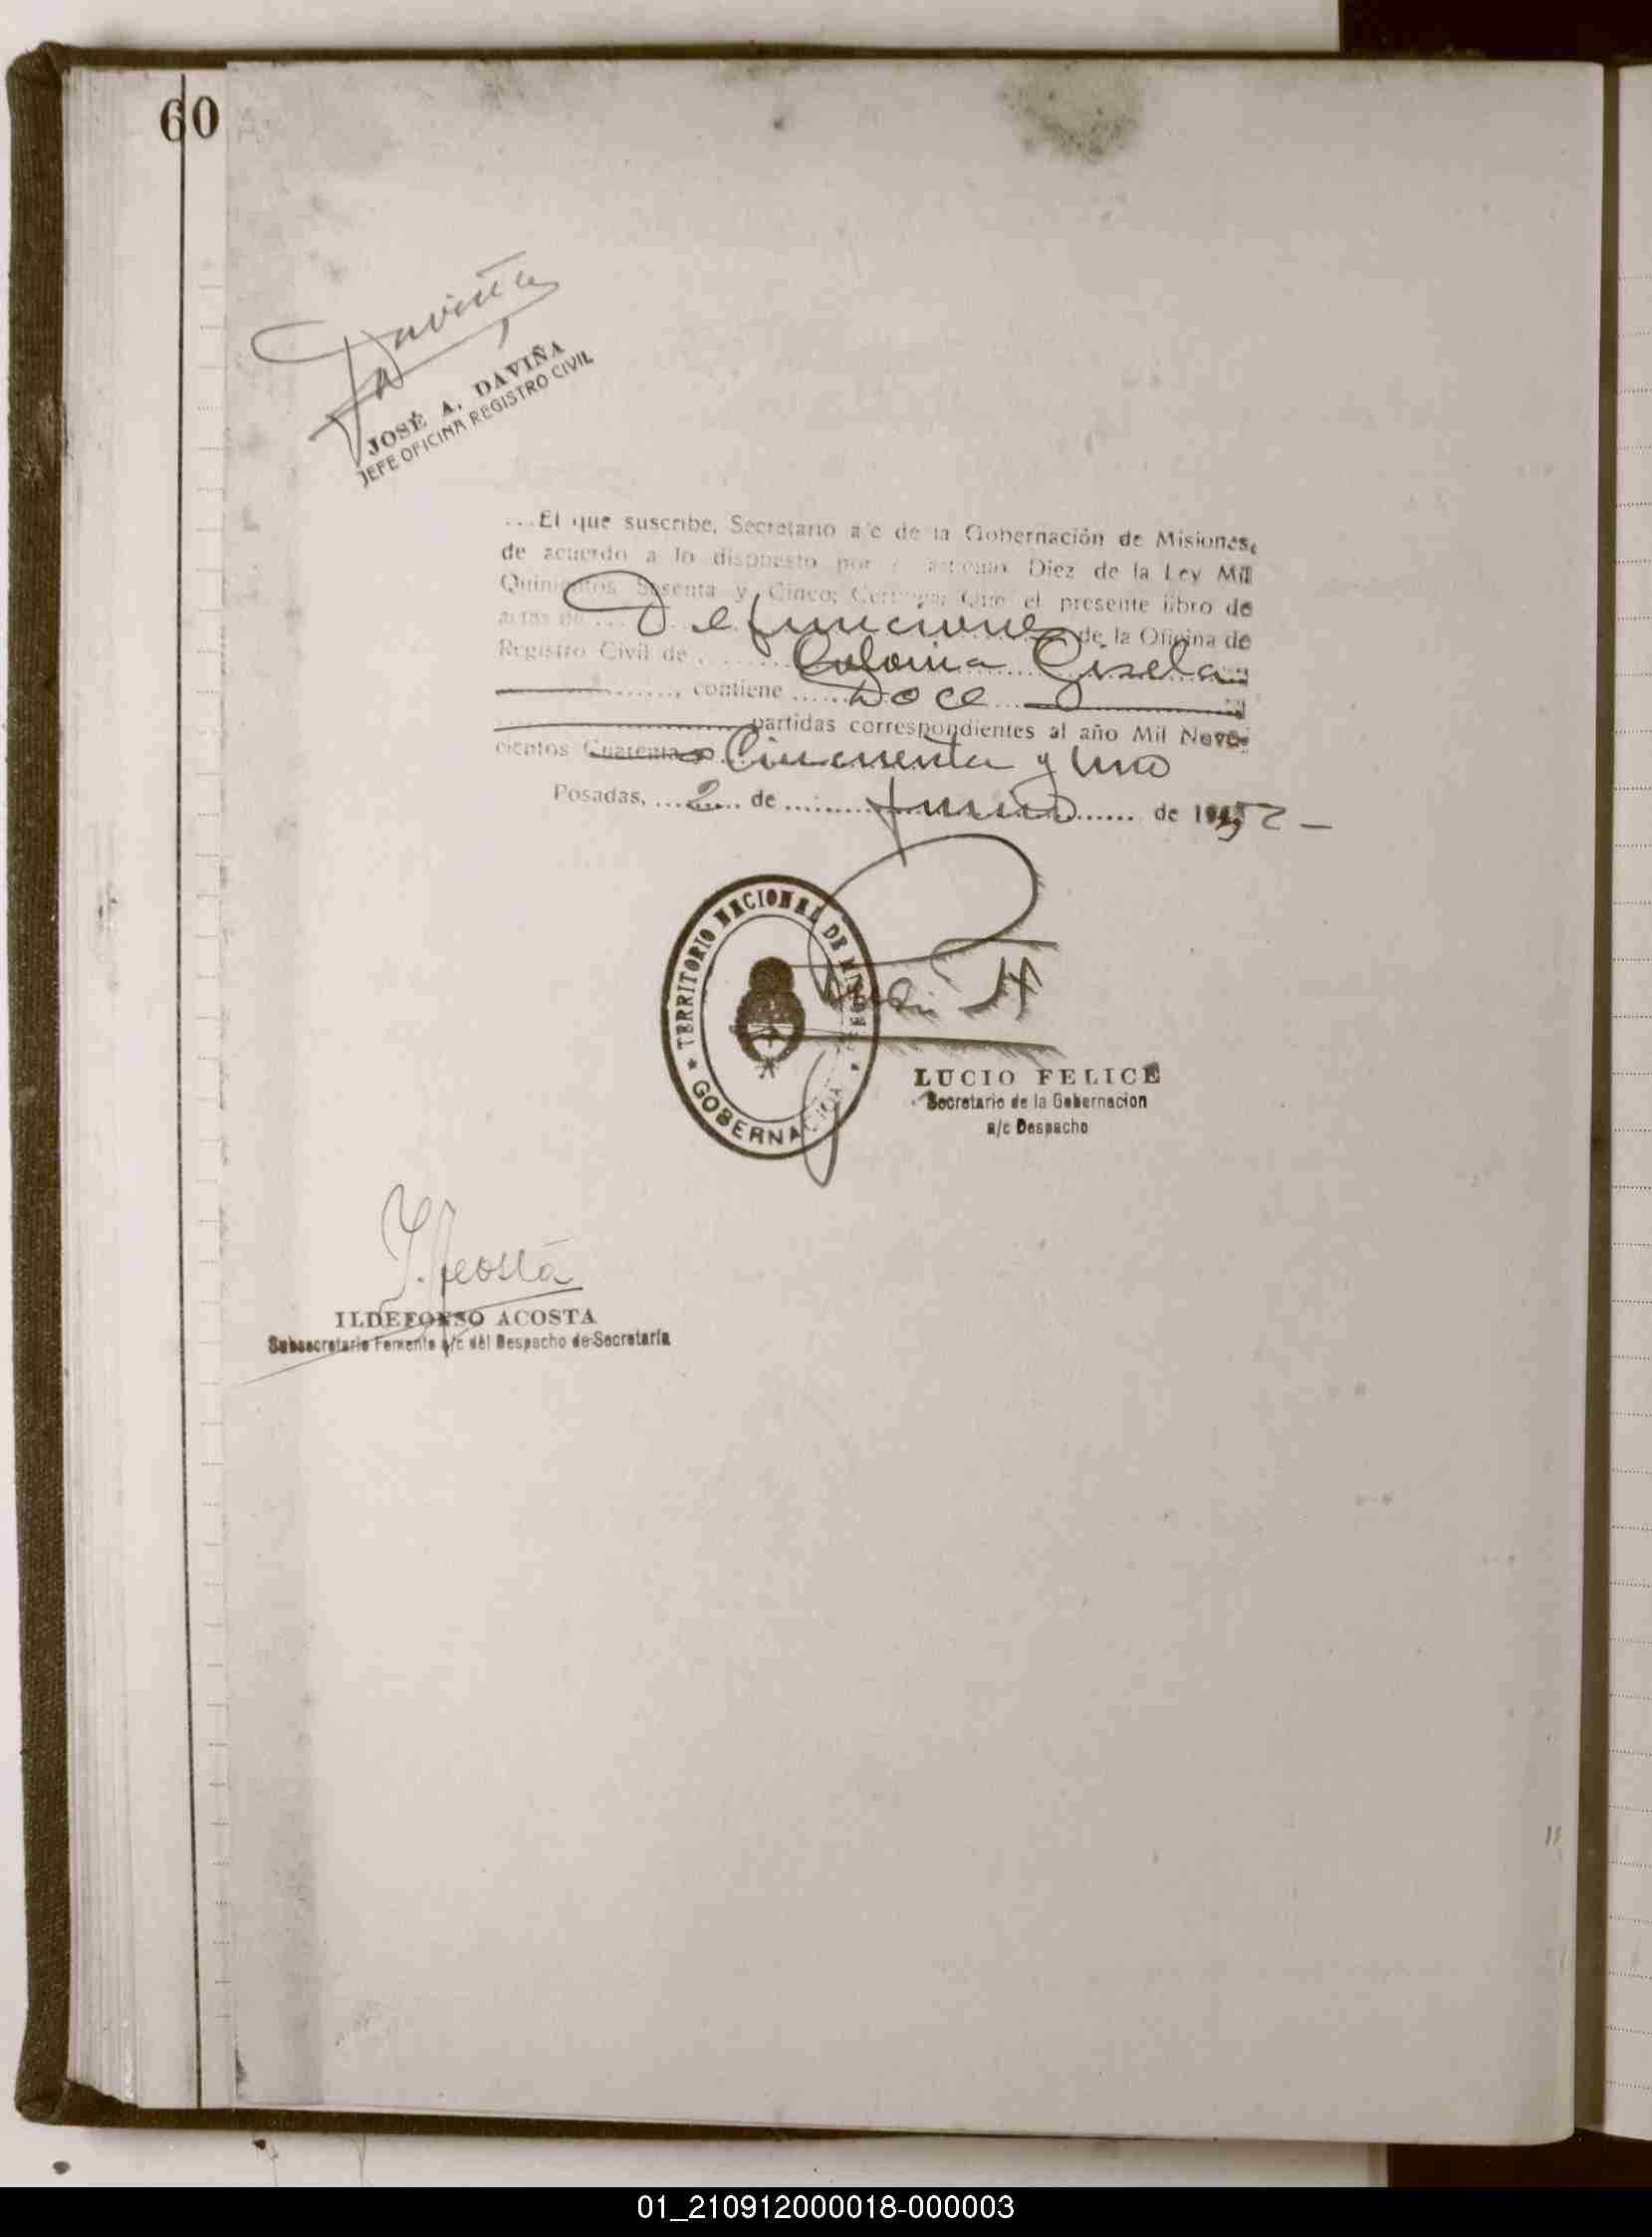 60
Daviña
JOSÉ A. DAVIÑA
JEFE OFICINA REGISTRO CIVIL
...El que suscribe, Secretario a/c de la Gobernación de Misiones,
de acuerdo a lo dispuesto por artículo Diez de la Ley Mil
Quinientos Sesenta y Cinco; Certifica: Que el presente libro de
actas de ... Defunciones de la Oficina de
Registro Civil de ........ Colonia Gisela
......., contiene ...... Doce ...
partidas correspondientes al año Mil Nove-
cientos Cuarenta Cincuenta y Uno
Posadas, ... 2 ... de ........ Junio ...... de 1952 -
TERRITORIO NACIONAL DE MISIONES
GOBERNACION
LUCIO FELICE
Secretario de la Gobernacion
a/c Despacho
I. Acosta
ILDEFONSO ACOSTA
Subsecretario Fomento a/c del Despacho de Secretaría
01_210912000018-000003